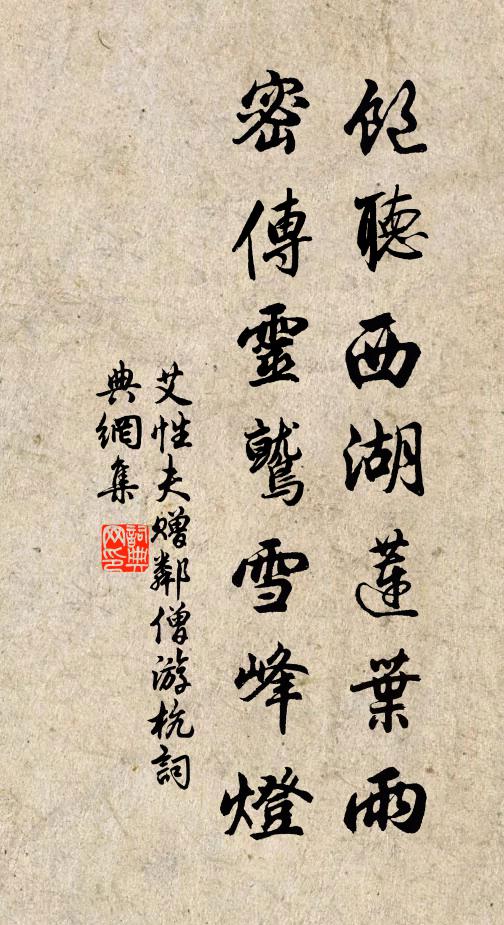 飽聽西湖蓮葉雨
密傳靈鷲雪峰燈
艾性夫贈鄰僧游杭詞
典網集
詞典網印